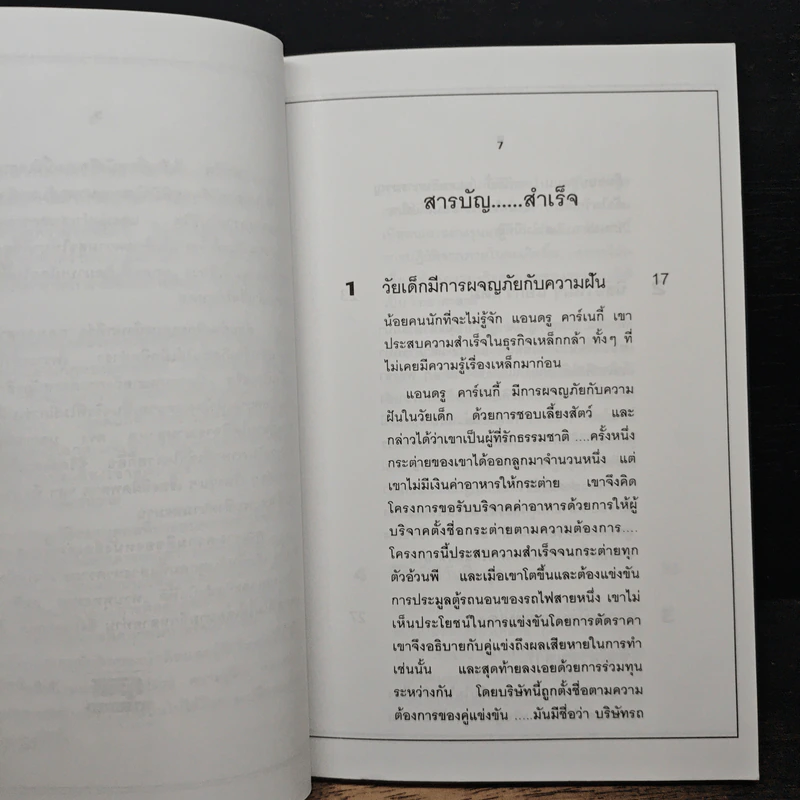 7
สารบัญ......สำเร็จ
1 วัยเด็กมีการผจญภัยกับความฝัน 17
น้อยคนนักที่จะไม่รู้จัก แอนดรู คาร์เนกี้ เขา
ประสบความสำเร็จในธุรกิจเหล็กกล้า ทั้งๆ ที่
ไม่เคยมีความรู้เรื่องเหล็กมาก่อน
แอนดรู คาร์เนกี้ มีการผจญภัยกับความ
ฝันในวัยเด็ก ด้วยการชอบเลี้ยงสัตว์ และ
กล่าวได้ว่าเขาเป็นผู้ที่รักธรรมชาติ ....ครั้งหนึ่ง
กระต่ายของเขาได้ออกลูกมาจำนวนหนึ่ง แต่
เขาไม่มีเงินค่าอาหารให้กระต่าย เขาจึงคิด
โครงการขอรับบริจาคค่าอาหารด้วยการให้ผู้
บริจาคตั้งชื่อกระต่ายตามความต้องการ....
โครงการนี้ประสบความสำเร็จจนกระต่ายทุก
ตัวอ้วนพี และเมื่อเขาโตขึ้นและต้องแข่งขัน
การประมูลตู้รถนอนของรถไฟสายหนึ่ง เขาไม่
เห็นประโยชน์ในการแข่งขันโดยการตัดราคา
เขาจึงอธิบายกับคู่แข่งถึงผลเสียหายในการทำ
เช่นนั้น และสุดท้ายลงเอยด้วยการร่วมทุน
ระหว่างกัน โดยบริษัทนี้ถูกตั้งชื่อตามความ
ต้องการของคู่แข่งขัน .....มันมีชื่อว่า บริษัทรถ